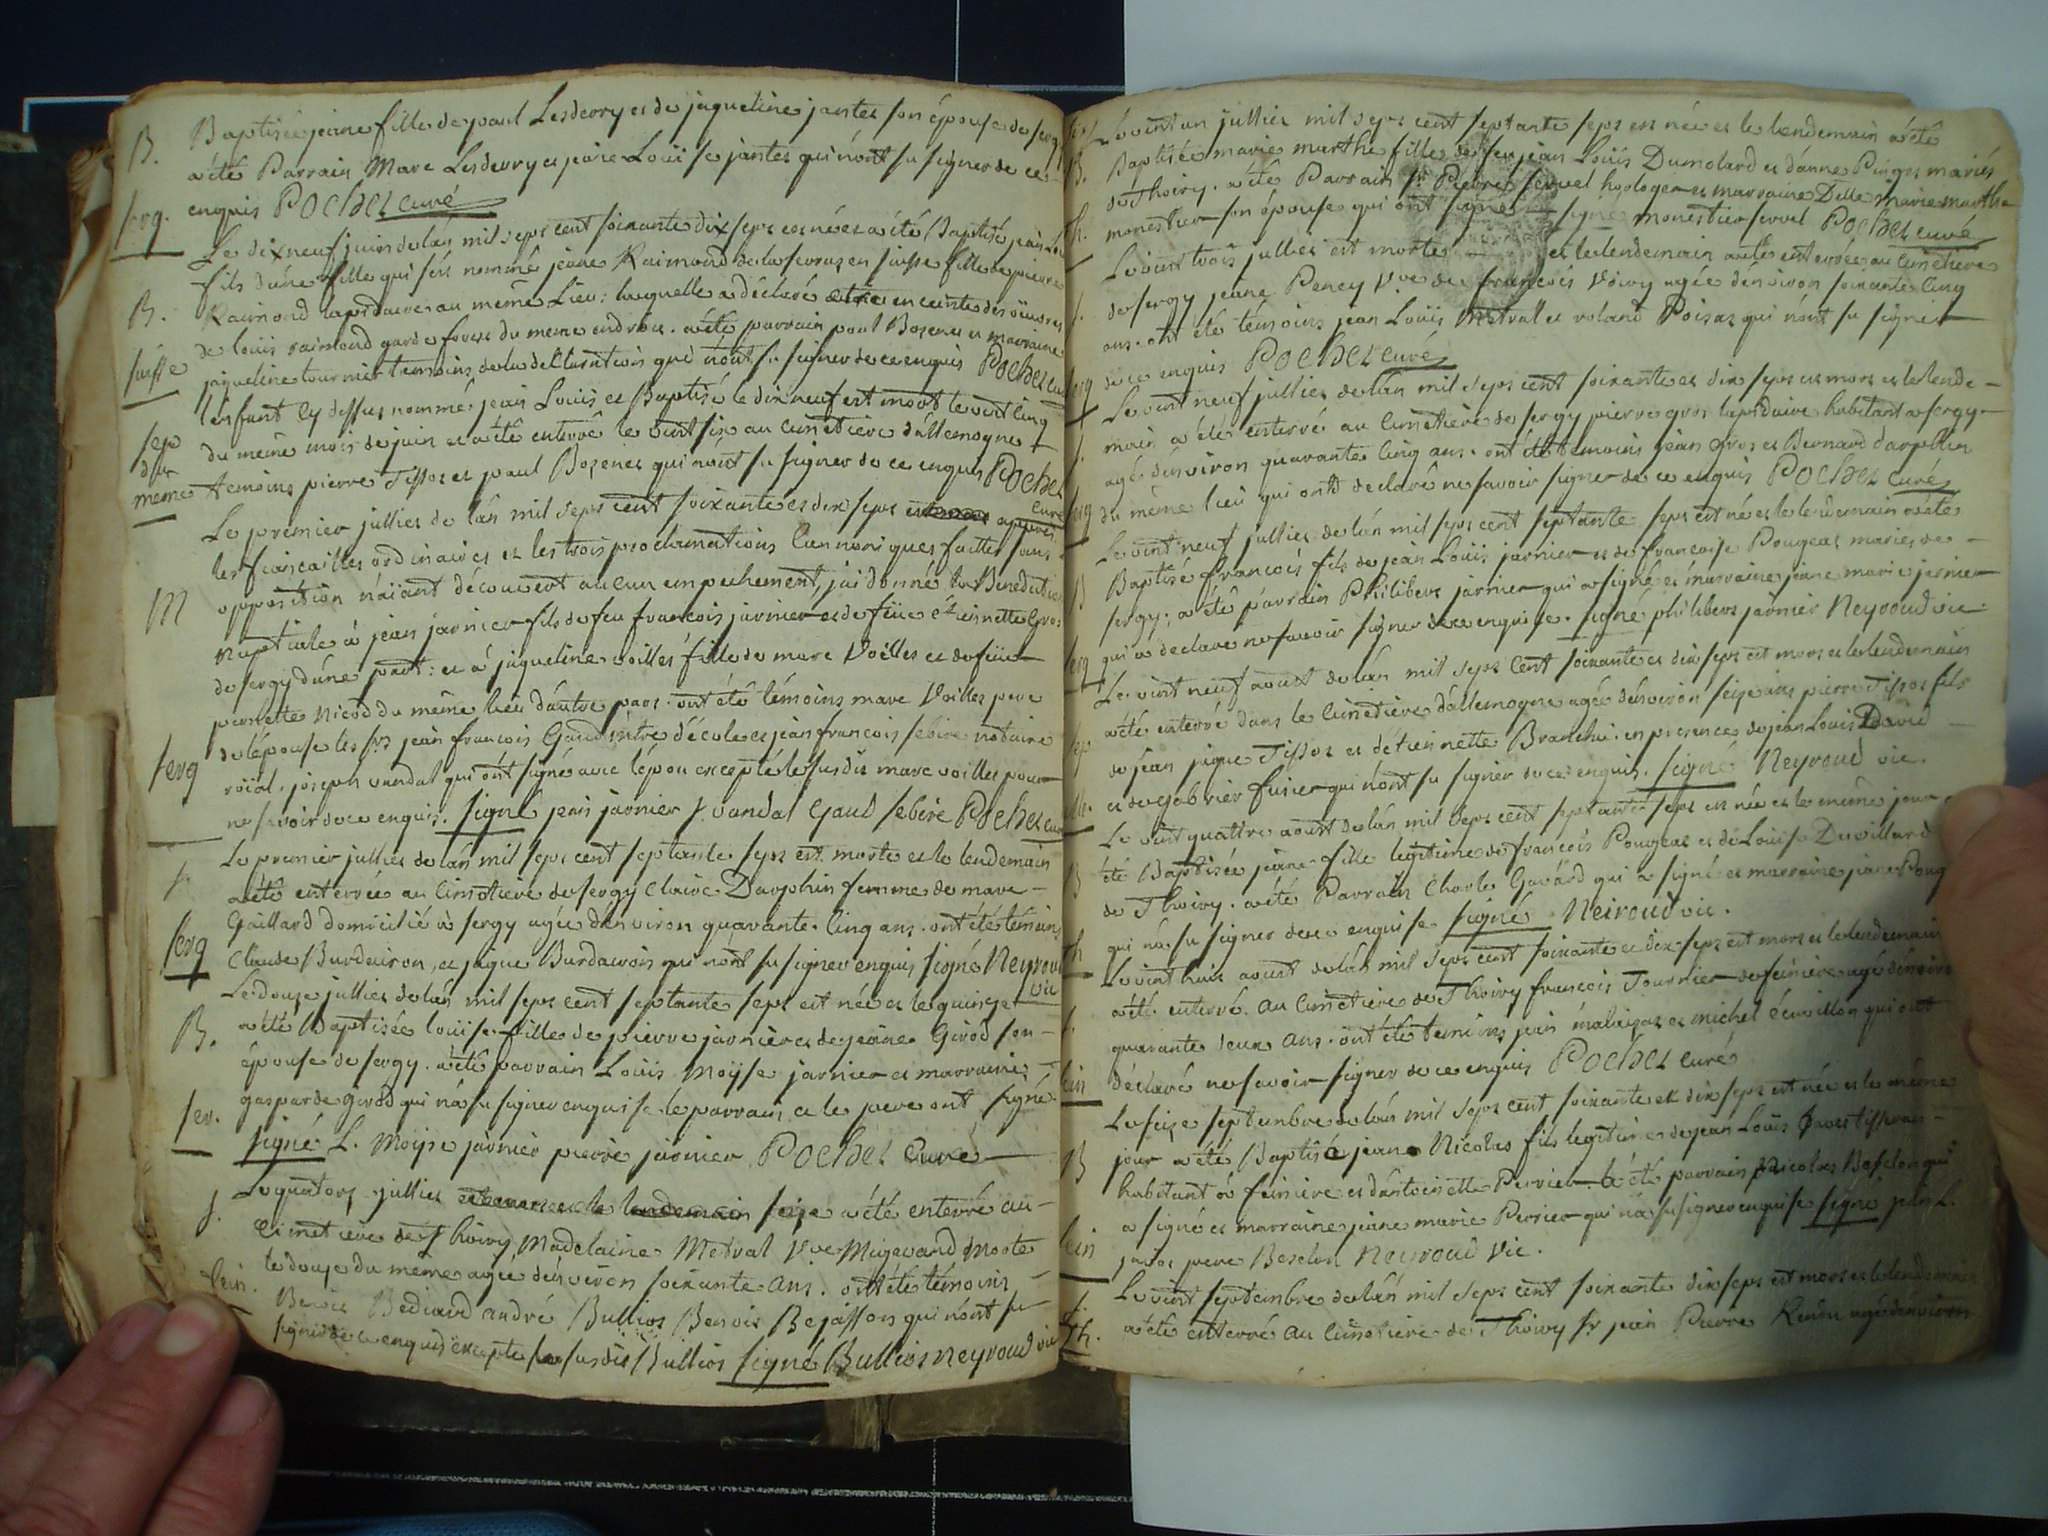 B. Baptisée jeane fille de paul Lesdevry et de jaqueline jantet son épouse de serg
a été Parrain Marc Lesdevry et jeane Louise jantet qui n'ont su signer de ce
serg. enquis Pochet curé
Le dix neuf juin de l'an mil sept cent soixante dix sept est né et a été Baptisé jean Louis
fils d'une fille qui s'est nommé jeane Raimond de la fille de pierre
B. Raimond lapidaire au même Lieu: laquelle a déclaré être enceinte des œuvres
de louis raimond garde du même endroit. a été parrain paul Bozenet et marraine
suisse jaqueline tournier temoins de la déclaration qui n'ont su signer de ce enquis Pochet curé
l'enfant cy dessus nommé jean Louis et Baptisé le dix neuf est mort le vint cinq
sep du même mois de juin et a été enterré le vint six au cimetiere d'allemogne
dud
meme temoins pierre Tissot et paul Bozenet qui n'ont su signer de ce enquis Pochet
curé
Le premier juillet de l'an mil sept cent soixante et dix sept apprès
les fiançailles ordinaires et les trois proclamations Cannoniques faittes sans
opposition n'aïant découvert aucun empechement, j'ai donné la Benediction
M Nuptiale à jean jarnier fils de feu francois jarnier et de feüe étiennette Gros
de sergy d'une part: et à jaqueline voilles fille de marc Voilles et de feüe
pernette Nicod du même lieu d'autre part. ont été témoins marc Voilles pere
de l'épouse les srs jean francois Gaud maitre d'école et jean francois sebire notaire
serg roïal, joseph vandal qui ont signé avec l'épou excepté le susdit marc voilles pour
ne savoir de ce enquis. signé jean jarnier J. vandal Gaud sebire Pochet curé
Le premier juillet de l'an mil sept cent septante sept est morte et le lendemain
s. a été enterrée au Cimetiere de sergy Claire Dauphin femme de marc
Gaillard domicilié à sergy agée d'environ quarante cinq ans. ont été témoins
serg Claude Burdairon, et jaque Burdairon qui n'ont su signer enquis signé Neyroud
vic
Le douze juillet de l'an mil sept cent septante sept est née et le quinze
B. a été Baptisée louise fille de pierre jarnier et de jeane Girod son
épouse de sergy. a été parrain Louis Moÿse jarnier et marraine
gasparde girod qui n'a su signer enquise le parrain et le pere ont signé
ser. signé L. Moÿse jarnier pierre jarnier Pochet Curé
s. Le quatorz juillet seize a été enterré au
Cimetiere de Thoiry Madelaine Metral Vve Migerand morte
le douze du meme agée d'environ soixante ans. ont été témoins
fein. Benoit Bediard andré Bulliot Benoit Bejasson qui n'ont su
signer de ce enquis excepté le susdit Bulliot signé Bulliot neyroud vic
Le vint un juillet mil sept cent septante sept est née et le lendemain a été
B. Baptisée marie marthe fille de feu jean Loüis Dumolard et d'anne Pinget mariés
de Thoiry. a été Parrain sr Pierre servel horloger et marraine Delle marie marthe
th. monestier son épouse qui ont signé signé monestier servel Pochet curé
Le vint trois juillet est morte et le lendemain a été enterrée au Cimetiere
s. de sergy jeane Peney Vve de francois Voiry agée d'environ soixante cinq
ans. ont été temoins jean Loüis Metral et roland Poisat qui n'ont su signer
serg de ce enquis Pochet curé
Le vint neuf juillet de l'an mil sept cent soixante et dix sept est mort et le lende-
s. main a été enterré au Cimetiere de sergy pierre gros lapidaire habitant a sergy
agé d'environ quarante cinq ans. ont été temoins jean Gros et Bernard dauphin
serg du même lieu qui ont declaré ne savoir signer de ce enquis Pochet Curé
Le vint neuf juillet de l'an mil sept cent septante sept est né et le lendemain a été
B Baptisé francois fils de jean Loüis jarnier et de francoise Pougeat mariés de
sergy; a été parrain Philibert jarnier qui a signé et marraine jeane marie jarnier
serg qui a declaré ne savoir signer de ce enquise. signé philibert jarnier Neyroud vic
Le vint neuf aoust de l'an mil sept cent soixante et dix sept est mort et le lendemain
a été enterré dans le cimetiere d'allemogne agé d'environ seize ans pierre Tissot fils
sep de jean jaque Tissot et d'étiennette Branchu. en presence de jean Louis David
et de Gabriel fusier qui n'ont su signer de ce enquis. signé Neyroud vic.
Le vint quattre aoust de l'an mil sept cent septante sept est née et le même jour a
B été Baptisée jeane fille legitime de francois Pougeat et de Louise Duvillard
de Thoiry. a été Parrain Charle Gavard qui a signé et marraine jeane Poug
th qui n'a su signer de ce enquise signé Neiroud vic.
Le vint huit aoust de l'an mil sept cent soixante et dix sept est mort et le lendemain
s. a été enterré au Cimetiere de Thoiry francois Tournier de feniere agé d'environ
quarante deux ans. ont été temoins jean et michel écuvillon qui ont
fein déclaré ne savoir signer de ce enquis Pochet curé
Le seize septembre de l'an mil sept cent soixante et dix sept est né et le même
B jour a été Baptisé jean Nicolas fils legitime de jean Louis
habitant à feniere et d'antoinette Perrier. a été parrain Nicolas Beselon qui
fein a signé et marraine jeane marie Perrier qui n'a su signer enquise signé jean L.
pere Beselon Neyroud Vic.
s. Le vint septembre de l'an mil sept cent soixante dix sept est mort et le lendemain
Th. a été enterré au Cimetiere de Thoiry sr jean Pierre agé d'environ